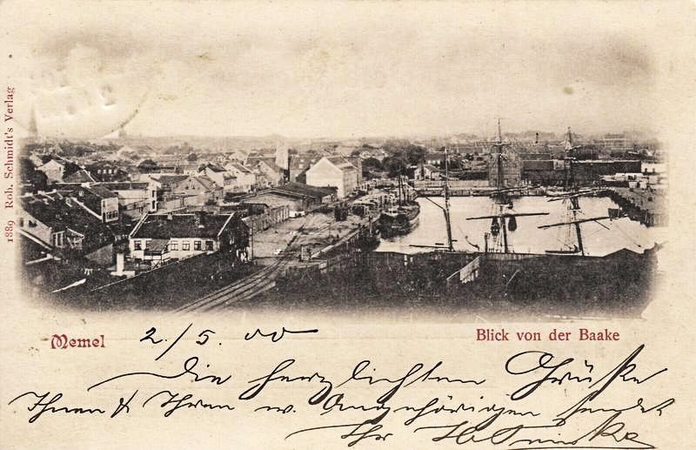 1889 Rob. Schmidt's Verlag
Memel 2/5. 00
Blick von der Baake
Die herzlichsten Grüße
Ihnen & Ihren w. Angehörigen sendet
Ihr